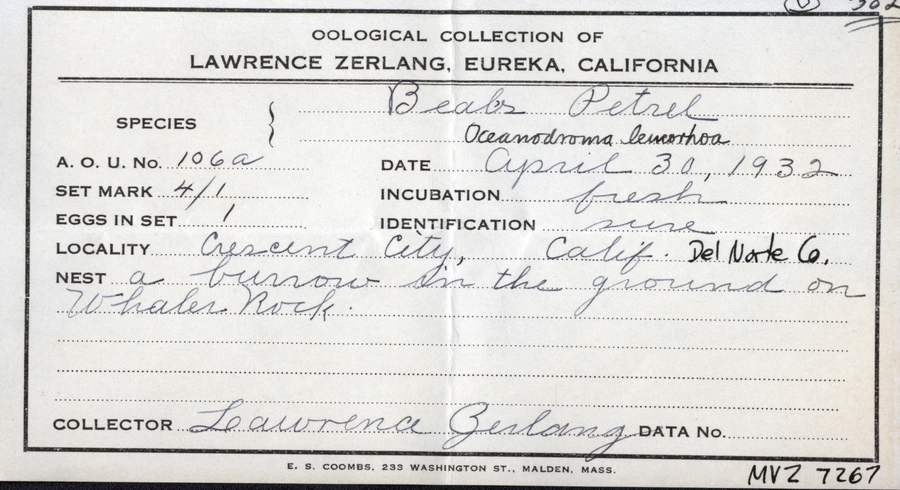 OOLOGICAL COLLECTION OF
LAWRENCE ZERLANG, EUREKA, CALIFORNIA
SPECIES Beals Petrel
Oceanodroma leucorhoa
A. O. U. No. 106a DATE April 30, 1932
SET MARK 4/1 INCUBATION fresh
EGGS IN SET 1 IDENTIFICATION sure
LOCALITY Crescent City, Calif. Del Norte Co.
NEST a burrow in the ground on
Whaler Rock.
COLLECTOR Lawrence Zerlang DATA No.
E. S. COOMBS, 233 WASHINGTON ST., MALDEN, MASS.
MVZ 7267